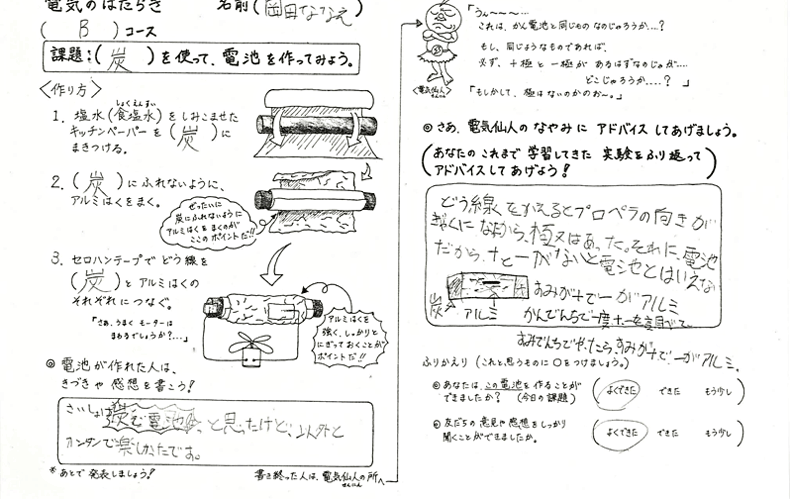 電気のはたらき 名前(岡田ななえ)
( B )コース
課題:(炭)を使って、電池を作ってみよう。
〈作り方〉
1. 塩水(食塩水)をしみこませた
しょくえんすい
キッチンペーパーを(炭)に
まきつける。
2. (炭)にふれないように、
アルミはくをまく。
ぜったいに
炭にふれないように
アルミはくをまくのが
ここのポイントだ!!
3. セロハンテープでどう線を
(炭)とアルミはくの
それぞれにつなぐ。
「さあ、うまくモーターは
まわるでしょうか?…」
アルミはくを
強く、しっかりと
にぎっておくことが
ポイントだ!!
◎ 電池が作れた人は、
きづきや感想を書こう!
さいしょは炭で電池
と思ったけど、以外と
カンタンで楽しかったです。
*あとで発表しましょう!
書き終った人は、電気仙人の所へ
せんにん
「うん〜〜…
これは、かん電池と同じものなのじゃろうか…?
もし、同じようなものであれば、
必ず、+極と-極があるはずなのじゃが…
どこじゃろうか…?」
「もしかして、極はないのかのお〜。」
〈電気仙人〉
せんにん
◎ さあ、電気仙人のなやみにアドバイスしてあげましょう。
(あなたのこれまで学習してきた実験をふり返って
アドバイスしてあげよう!)
どう線をかえるとプロペラの向きが
ぎゃくになるから、極はあった。それに、電池
だから、+と-がないと電池とはいえない
すみが+で-がアルミ
炭 アルミ
かんでんちで一度+-を調べて
すみでんちでやったら、すみが+で、-がアルミ。
ふりかえり (これと思うものに○をつけましょう。)
◎あなたは、この電池を作ることが
できましたか? (今日の課題)
(よくできた できた もう少し)
◎友だちの意見や感想をしっかり
聞くことができましたか。
(よくできた できた もう少し)